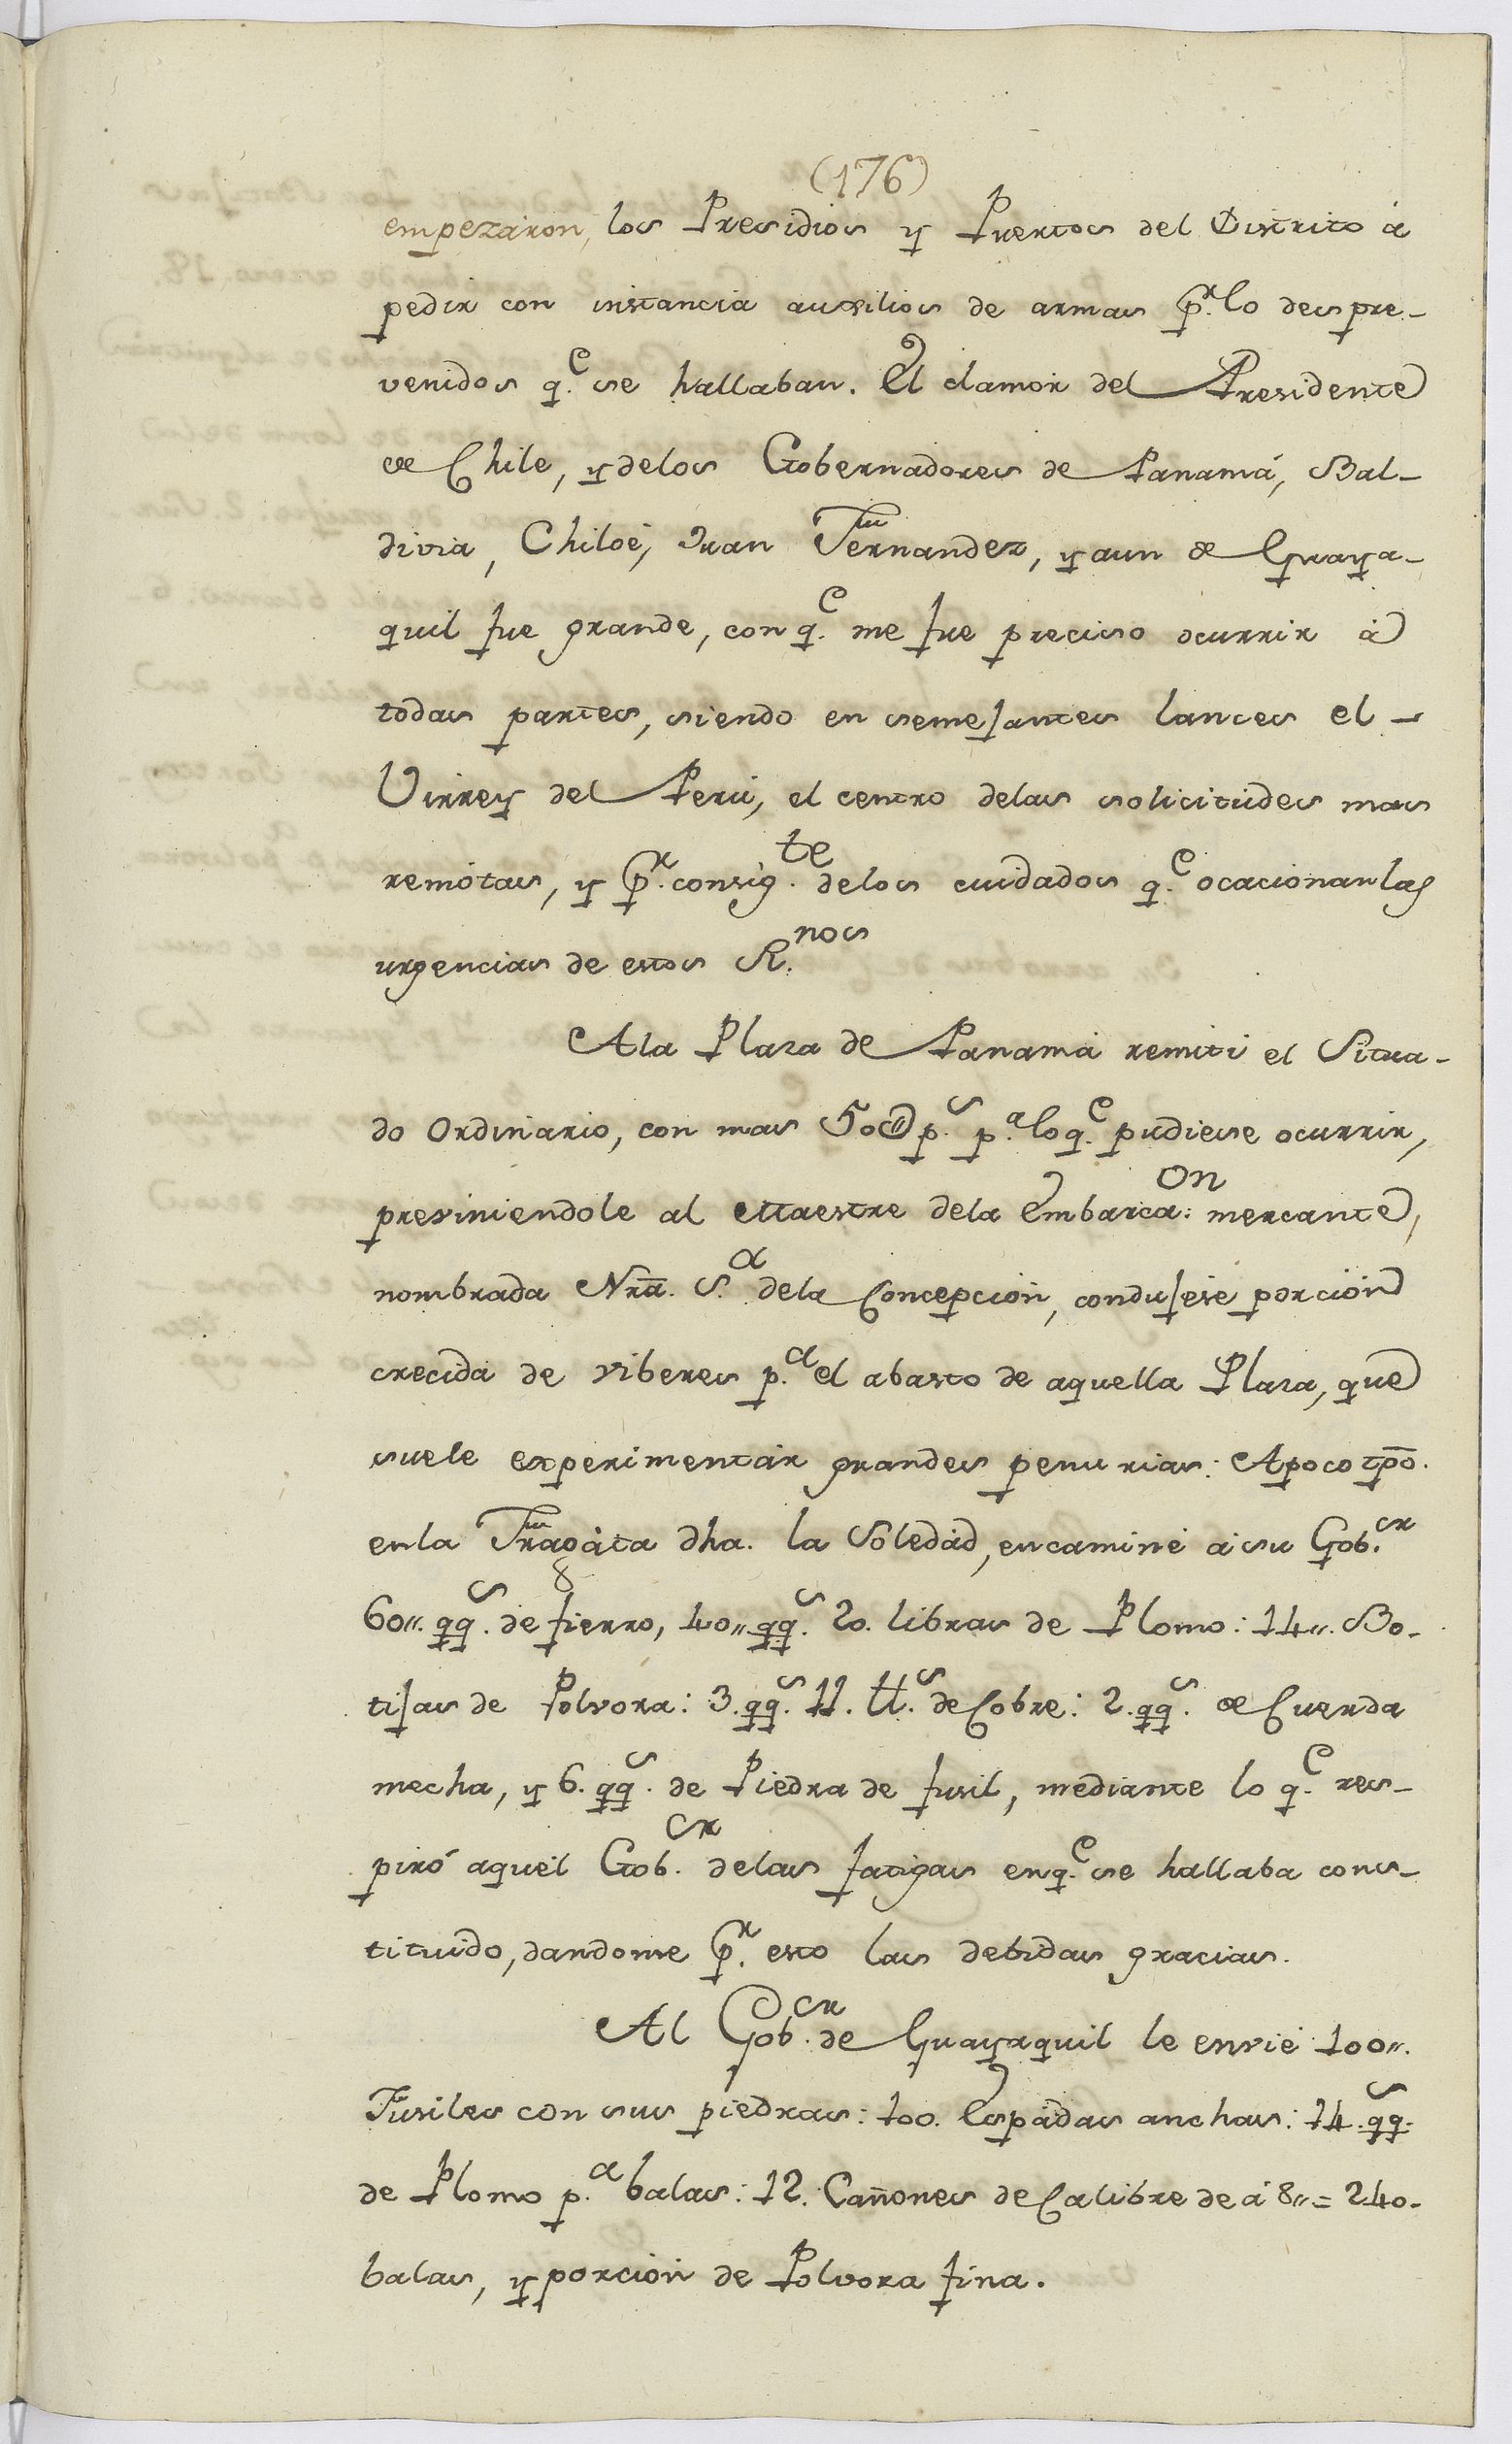 (176)
empezaron, los Presidios y Puertos del Distrito á
pedir con instancia auxilios de armas p.r lo despre-
venidos q.e se hallaban. El clamor del Presidente
de Chile, y delos Gobernadores de Panamá, Bal-
divia, Chiloé, Juan Fernandez, y aun de Guaya-
quil fue grande, con q.e me fue preciso ocurrir á
todas partes, siendo en semejantes lances el -
Virrey del Perú, el centro delas solicitudes mas
remotas, y p.r consig.te delos cuidados q.e ocacionan las
urgencias de estos R.nos
Ala Plaza de Panamá remiti el Situa-
do Ordinario, con mas 50@ p.s p.a lo q.e pudiese ocurrir,
previniendole al Maestre dela Embarca:on mercante,
nombrada Nra. S.a dela Concepcion, condujese porcion
crecida de viberes p.a el abasto de aquella Plaza, que
suele experimentar grandes penurias: Apoco tpo.
enla Fragata dha. la Soledad, encaminé á su Gob.or
60,, qq.s de fierro, 40,, qq.s 20. libras de Plomo: 14,, Bo-
tijas de Polvora: 3. qq.s 11. lt.s de Cobre: 2. qq.s de Cuerda
mecha, y 6. qq.s de Piedra de fusil, mediante lo q.e res-
piró aquel Gob.or delas fatigas enq.e se hallaba cons-
tituido, dandome p.r esto las debidas gracias.
Al Gob.or de Guayaquil le envié 100,,
Fusiles con sus piedras: 100. Espadas anchas: 14. qq.s
de Plomo p.a balas: 12. Cañones de Calibre de á 8,, = 240.
balas, y porcion de Polvora fina.